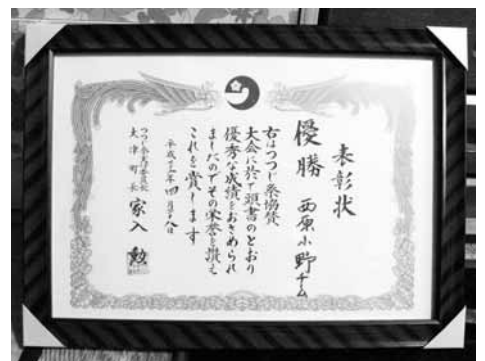 表彰状
優勝 西原小野チーム
右はつつじ祭協賛
大会に於て頭書のとおり
優秀な成績をおさめられ
ましたのでその栄誉を讃え
これを賞します
平成十三年四月十八日
つつじ祭実行委員長
大津町長 家入勲